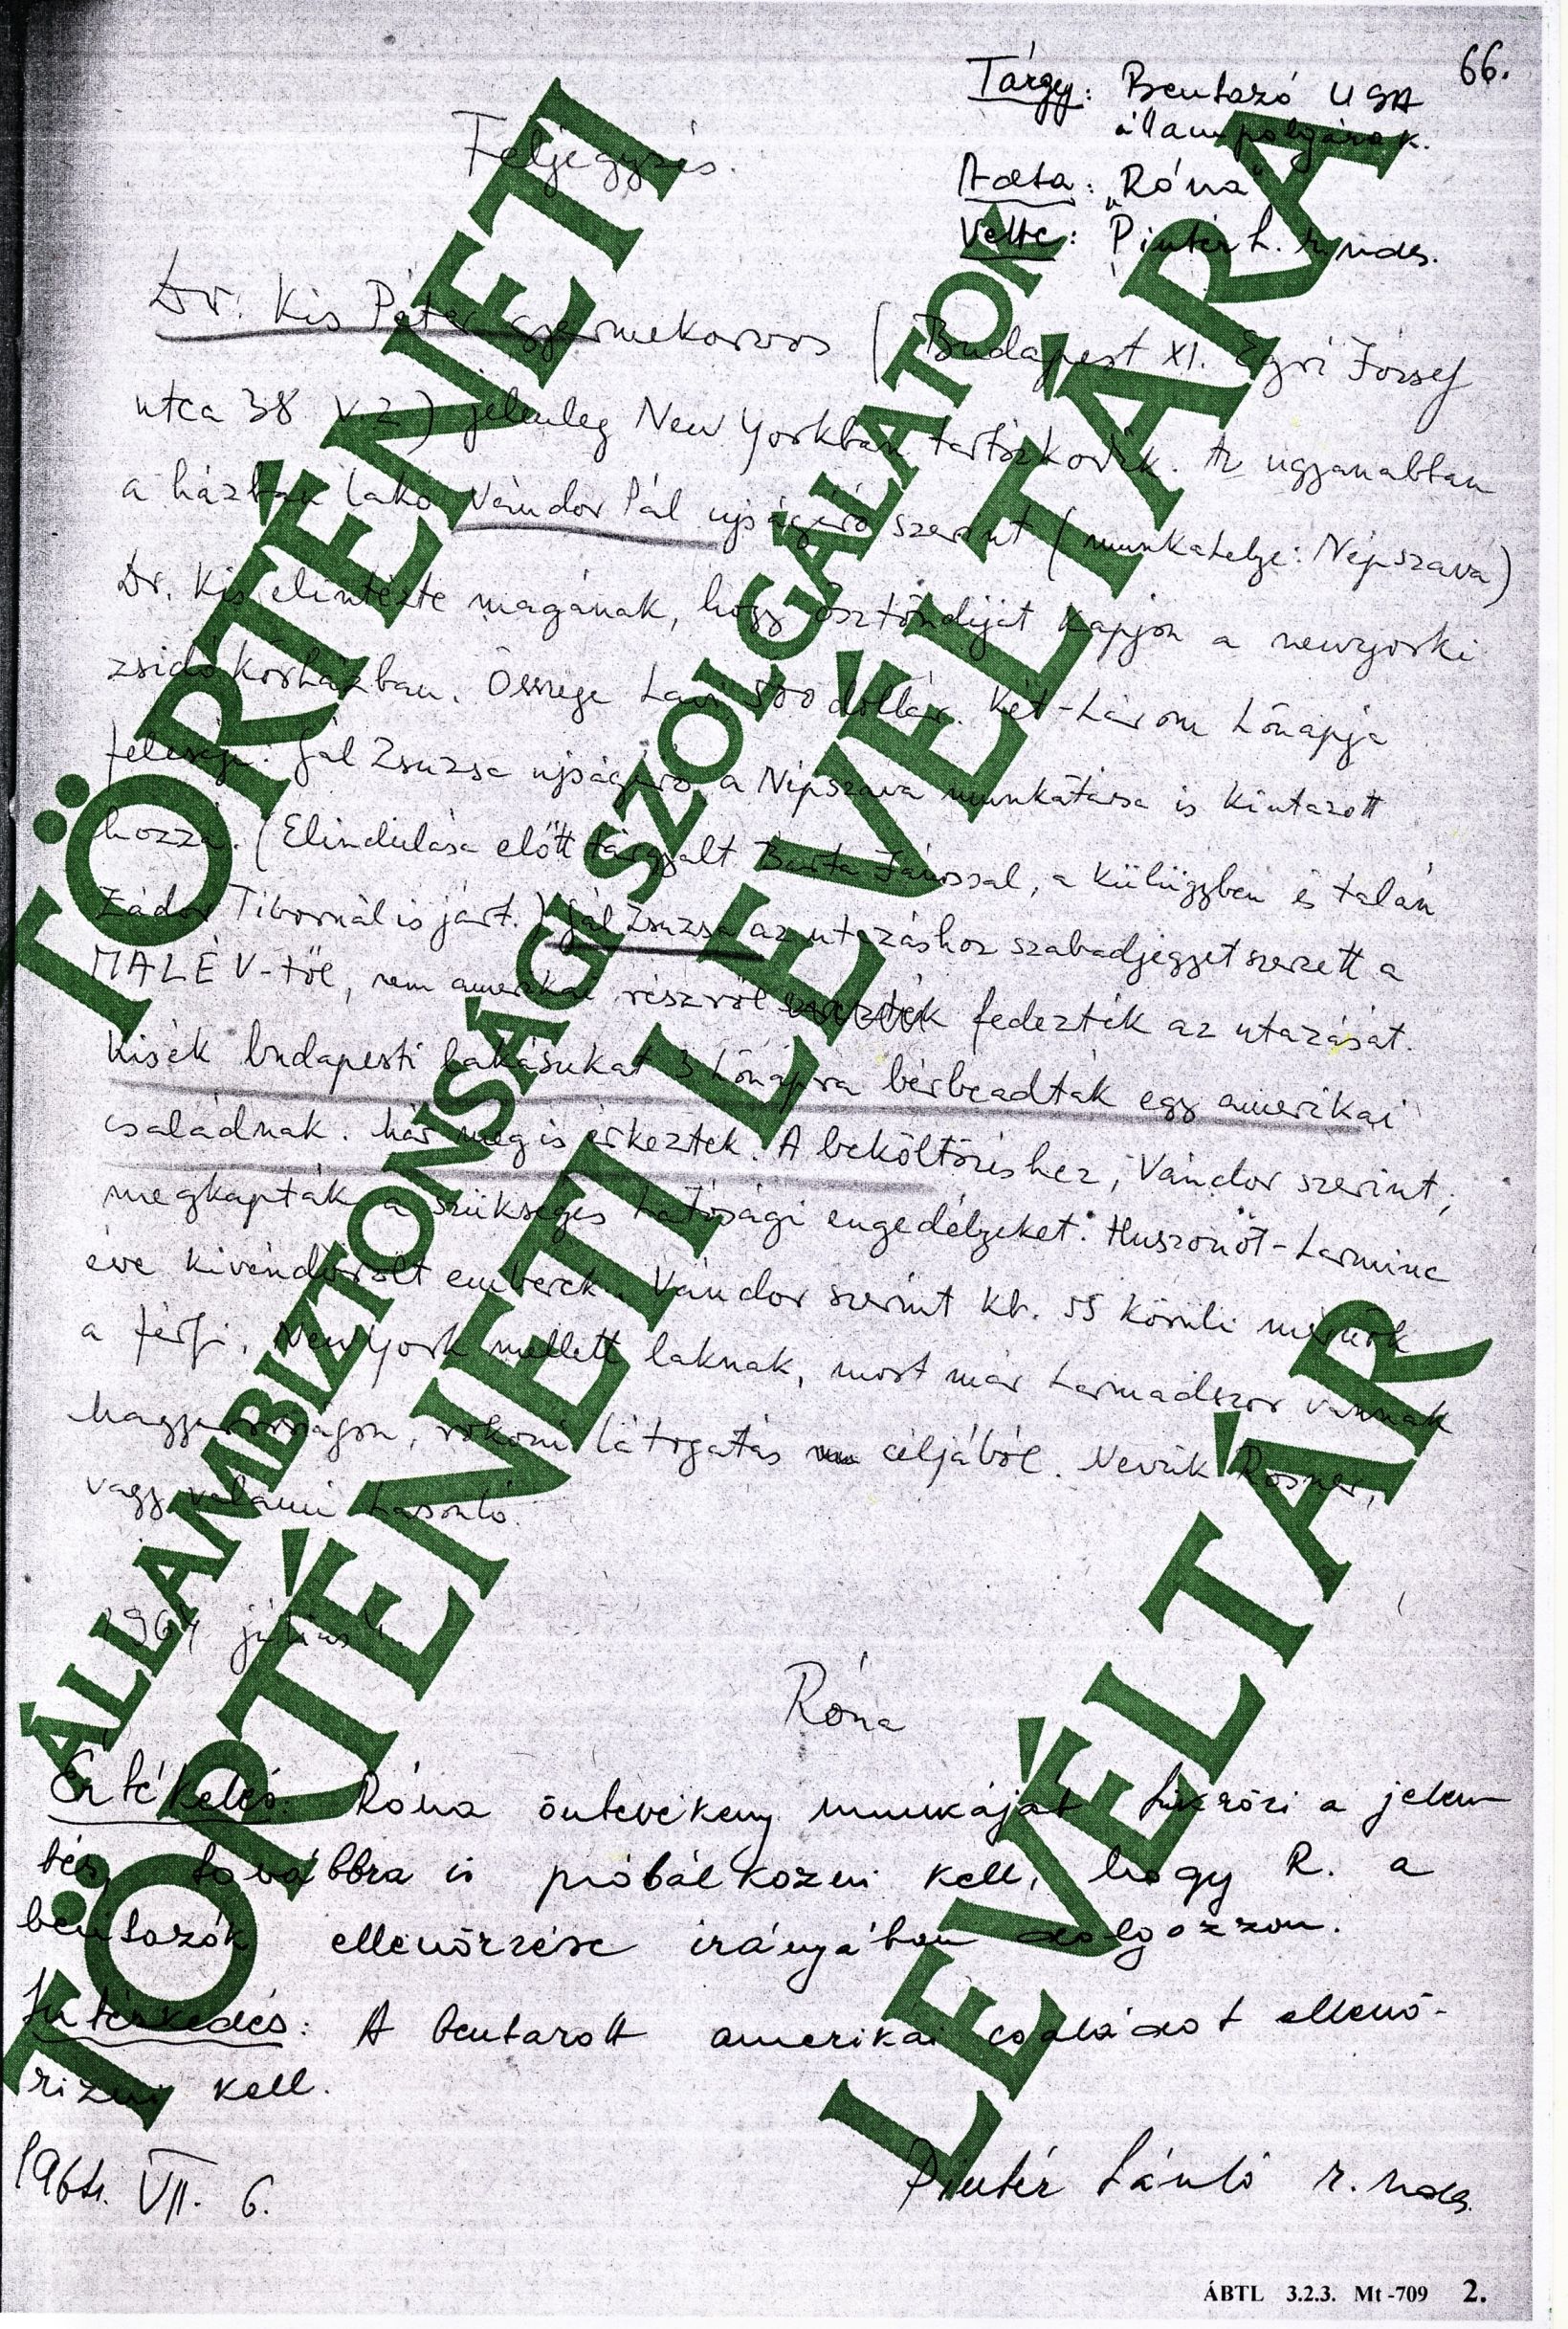 66.
Tárgy: Beutazó USA
állampolgárok.
Adta: "Róna"
Vette: Pintér L. r. nds.
Feljegyzés.
Dr. Kis Péter gyermekorvos (Budapest XI. Egri József
utca 38 V.2) jelenleg New Yorkban tartózkodik. Az ugyanabban
a házban lakó Vándor Pál ujságiró szerint (munkahelye: Népszava)
Dr. Kis elintézte magának, hogy ösztöndijat kapjon a newyorki
zsidó kórházban. Összege havi 500 dollár. Két-három hónapja
felesége: Gál Zsuzsa ujságiró a Népszava munkatársa is kiutazott
hozzá. (Elindulása előtt tárgyalt Barta Jánossal, a külügyben és talán
Zádor Tibornál is járt.) Gál Zsuzsa az utazáshoz szabadjegyet szerzett a
MALÉV-től, nem amerikai részről fedezték az utazását.
Kisék budapesti lakásukat 3 hónapra bérbeadták egy amerikai
családnak. Már meg is érkeztek. A beköltözéshez, Vándor szerint,
megkapták a szükséges hatósági engedélyeket. Huszonöt-harminc
éve kivándorolt emberek. Vándor szerint kb. 55 körüli mérnök
a férfi. New York mellett laknak, most már harmadszor vannak
Magyarországon, rokoni látogatás céljából. Nevük Rosner,
vagy valami hasonló.
1964 július 4.
Róna
Értékelés: Róna öntevékeny munkáját tükrözi a jelen-
tés, továbbra is próbálkozni kell, hogy R. a
beutazók ellenőrzése irányában dolgozzon.
Intézkedés: A beutazott amerikai családot ellenő-
rizni kell.
1964. VII. 6.
Pintér László r. nds.
ÁLLAMBIZTONSÁGI SZOLGÁLATOK
TÖRTÉNETI LEVÉLTÁRA
TÖRTÉNETI
LEVÉLTÁR
ÁBTL 3.2.3. Mt-709 2.